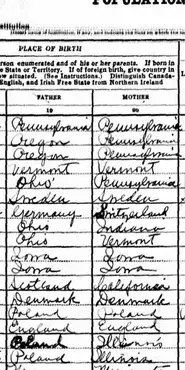 POPULATION
Institution
PLACE OF BIRTH
person enumerated and of his or her parents. If born in
State or Territory. If of foreign birth, give country in
now situated. (See Instructions.) Distinguish Canada-
English, and Irish Free State from Northern Ireland
FATHER MOTHER
19 20
Pennsylvania Pennsylvania
Oregon Pennsylvania
Oregon Pennsylvania
Vermont Vermont
Ohio Pennsylvania
Sweden Sweden
Germany Switzerland
Ohio Indiana
Ohio Vermont
Iowa Iowa
Iowa Iowa
Scotland California
Denmark Denmark
Poland Poland
England England
Poland Illinois
Poland Illinois